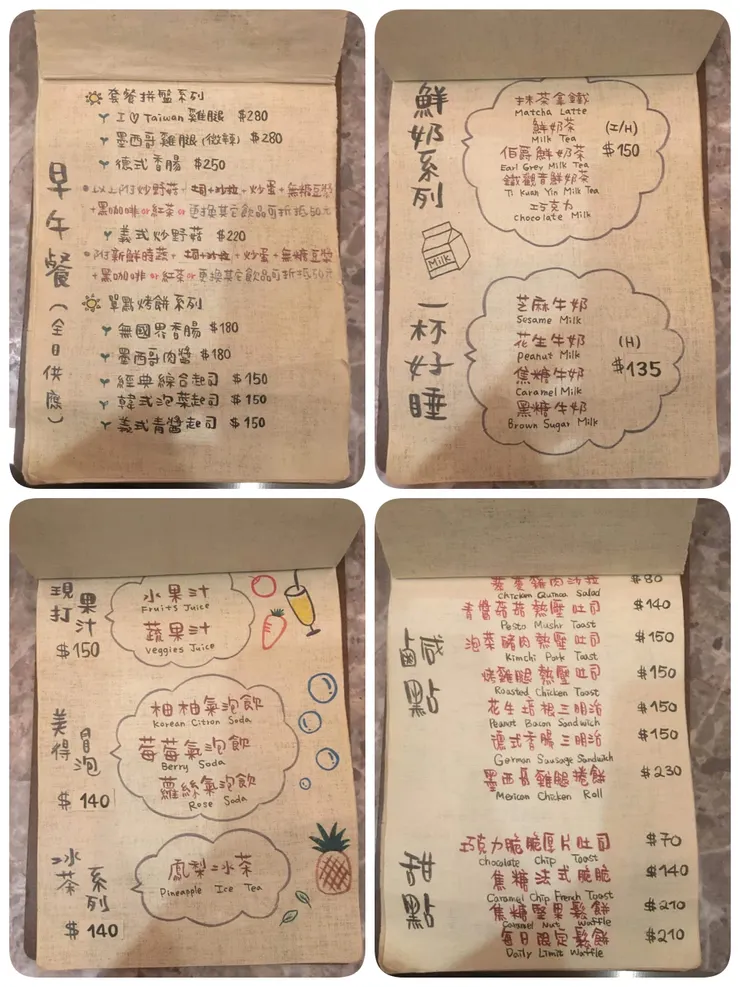 早午餐(全日供應)
套餐拼盤系列
I♡Taiwan 雞腿 $280
墨西哥雞腿(微辣) $280
德式香腸 $250
以上附炒野菇 + 沙拉 + 炒蛋 + 無糖豆漿
+ 黑咖啡 or 紅茶 or 更換其它飲品可折抵50元
義式炒野菇 $220
附新鮮時蔬 + + 炒蛋 + 無糖豆漿
+ 黑咖啡 or 紅茶 or 更換其它飲品可折抵50元
單點烤餅系列
無國界香腸 $180
墨西哥肉醬 $180
經典綜合起司 $150
韓式泡菜起司 $150
義式青醬起司 $150
鮮奶系列
抹茶拿鐵
Matcha Latte
鮮奶茶
Milk Tea
伯爵鮮奶茶
Earl Grey Milk Tea
鐵觀音鮮奶茶
Ti Kuan Yin Milk Tea
巧克力
Chocolate Milk
(I/H)
$150
Milk
一杯好睡
芝麻牛奶
Sesame Milk
花生牛奶
Peanut Milk
焦糖牛奶
Caramel Milk
黑糖牛奶
Brown Sugar Milk
(H)
$135
現打果汁
$150
水果汁
Fruits Juice
蔬果汁
Veggies Juice
美得冒泡
$140
柚柚氣泡飲
Korean Citron Soda
莓莓氣泡飲
Berry Soda
蘿絲氣泡飲
Rose Soda
冰茶系列
$140
鳳梨冰茶
Pineapple Ice Tea
鹹點
雞肉沙拉 $80
Chicken Quinoa Salad
青醬菇菇熱壓吐司 $140
Pesto Mushr Toast
泡菜豬肉熱壓吐司 $150
Kimchi Pork Toast
烤雞腿熱壓吐司 $150
Roasted Chicken Toast
花生培根三明治 $150
Peanut Bacon Sandwich
德式香腸三明治 $150
German Sausage Sandwich
墨西哥雞腿捲餅 $230
Mexican Chicken Roll
甜點
巧克力脆脆厚片吐司 $70
Chocolate Chip Toast
焦糖法式脆脆 $140
Caramel Chip French Toast
焦糖堅果鬆餅 $210
Caramel Nut Waffle
每日限定鬆餅 $210
Daily Limit Waffle